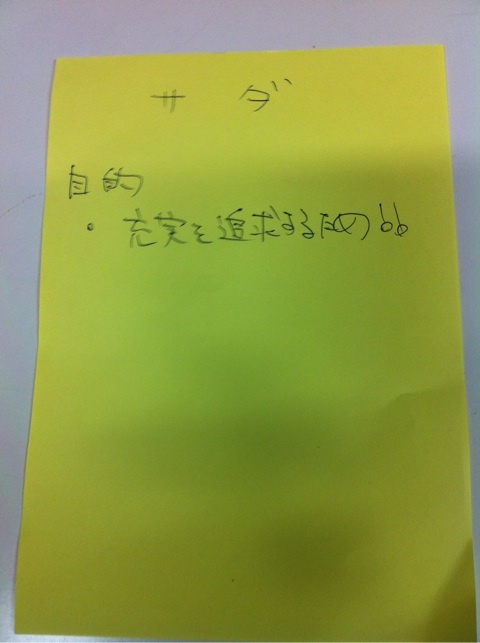 サダ
目的
・充実を追求するため!!